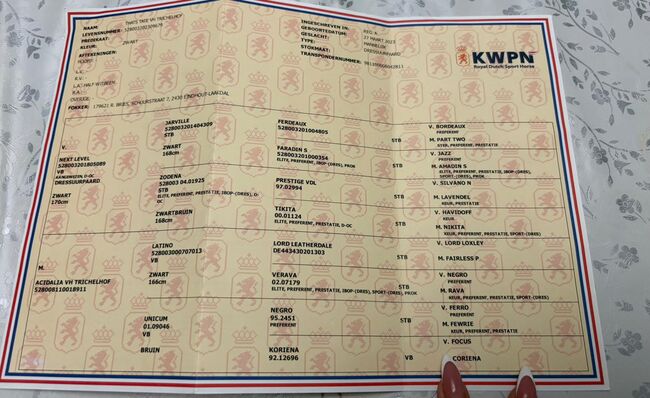 NAAM: THATS TATE VH TRICHELHOF
LEVENSNUMMER: 528003202309678
PREDIKAAT:
KLEUR: ZWART
AFTEKENINGEN
HOOFD:
L.V.:
R.V.:
L.A.: HALF WITBEEN.
R.A.:
OVERIGE:
FOKKER: 179621 R. BRIES, SCHUURSTRAAT 7, 2430 EINDHOUT-LAAKDAL
INGESCHREVEN IN: REG A
GEBOORTEDATUM: 27 MAART 2023
GESLACHT: MANNELIJK
TYPE: DRESSUURPAARD
STOKMAAT:
TRANSPONDERNUMMER:
KWPN
Royal Dutch Sport Horse
V.
NEXT LEVEL
528003201805089
VB
AANGEWEZEN, D-OC
DRESSUURPAARD
ZWART
170cm
JARVILLE
528003201404309
STB
ZWART
168cm
ZODENA
528003 04.01925
STB
ELITE, PREFERENT, PRESTATIE, IBOP-(DRES), D-OC
ZWARTBRUIN
168cm
FERDEAUX
528003201004805
STB
FARADIN S
528003201000354
ELITE, PREFERENT, IBOP-(DRES), PROK
PRESTIGE VDL
97.02994
STB
TIKITA
00.01124
ELITE, PREFERENT, PRESTATIE, D-OC
STB
V. BORDEAUX
PREFERENT
M. PART TWO
STER, PREFERENT, PRESTATIE
V. JAZZ
PREFERENT
M. AMADIN S
ELITE, PREFERENT, PRESTATIE, IBOP-(DRES), SPORT-(DRES), PROK
V. SILVANO N
M. LAVENDEL
KEUR, PRESTATIE
V. HAVIDOFF
KEUR
M. NIKITA
KEUR, PREFERENT, PRESTATIE, SPORT-(DRES)
M.
ACIDALIA VH TRICHELHOF
528008110018911
LATINO
528003000707013
VB
ZWART
166cm
UNICUM
01.09046
VB
BRUIN
LORD LEATHERDALE
DE443430201303
VERAVA
02.07179
ELITE, PREFERENT, PRESTATIE, IBOP-(DRES), SPORT-(DRES), PROK
STB
NEGRO
95.2451
PREFERENT
STB
KORIENA
92.12696
VB
V. LORD LOXLEY
M. FAIRLESS P
V. NEGRO
PREFERENT
M. RAVA
KEUR, PREFERENT, PRESTATIE
V. FERRO
PREFERENT
M. FEWRIE
KEUR, PREFERENT, PRESTATIE
V. FOCUS
CORIENA